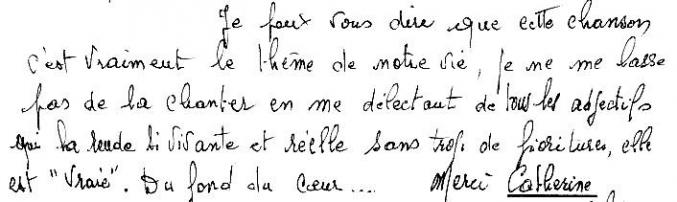 Je peux vous dire que cette chanson
c'est vraiment le thème de notre vie, je ne me lasse
pas de la chanter en me délectant de tous les adjectifs
qui la rende si vivante et réelle sans trop de fioritures, elle
est "vraie". Du fond du cœur.... Merci Catherine